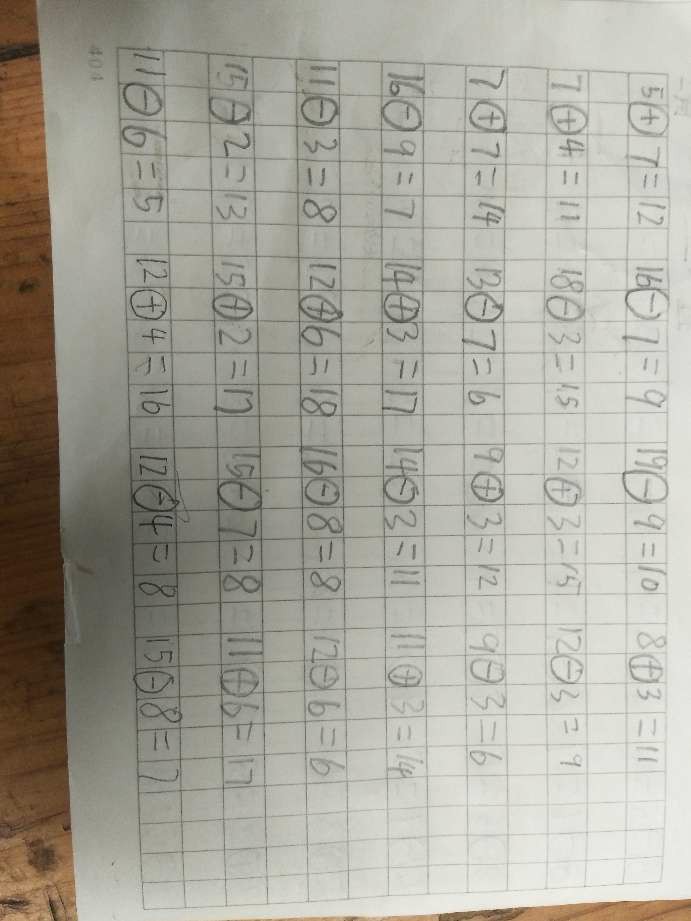 5⊕7=12 16⊖7=9 19⊖9=10 8⊕3=11
7⊕4=11 18⊖3=15 12⊕3=15 12⊖3=9
7⊕7=14 13⊖7=6 9⊕3=12 9⊖3=6
16⊖9=7 14⊕3=17 14⊖3=11 11⊕3=14
11⊖3=8 12⊕6=18 16⊖8=8 12⊖6=6
15⊖2=13 15⊕2=17 15⊖7=8 11⊕6=17
11⊖6=5 12⊕4=16 12⊖4=8 15⊖8=7
404